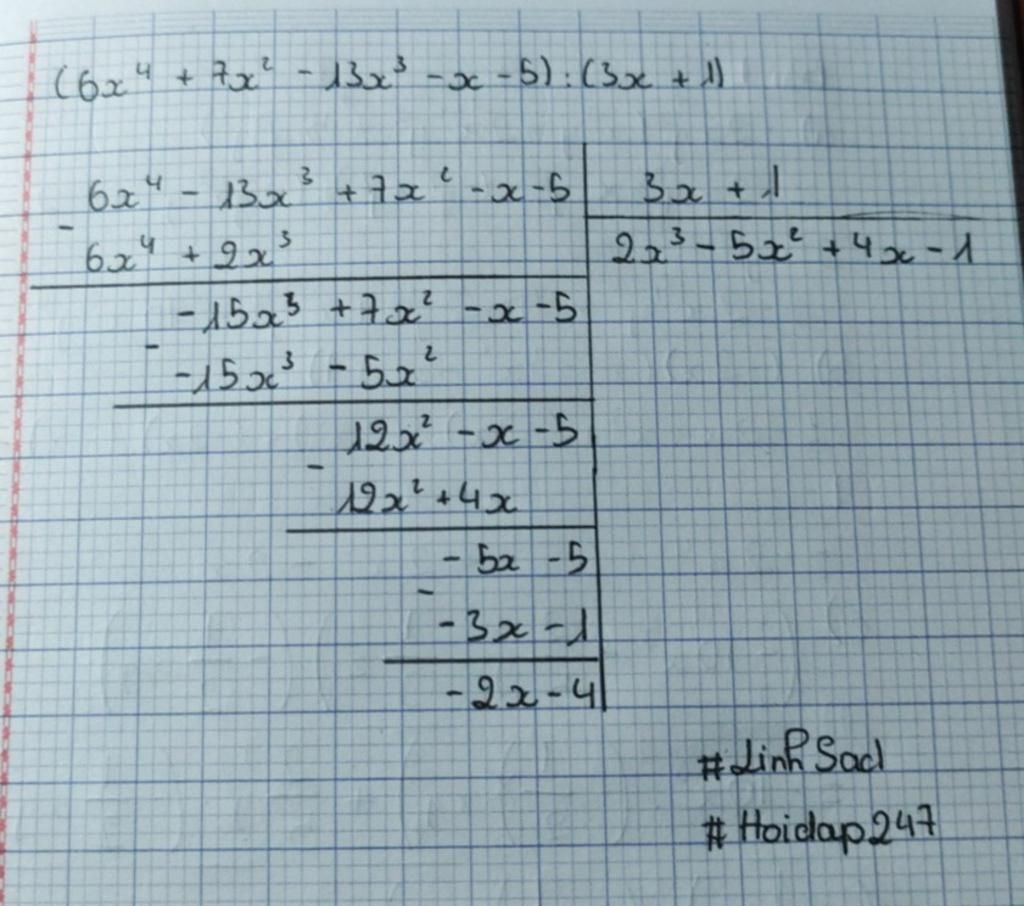 (6x⁴ + 7x² - 13x³ - x - 5) : (3x + 1)
6x⁴ - 13x³ + 7x² - x - 5 3x + 1
-
6x⁴ + 2x³ 2x³ - 5x² + 4x - 1
-15x³ + 7x² - x - 5
-
-15x³ - 5x²
12x² - x - 5
-
12x² + 4x
- 5x - 5
-
- 3x - 1
- 2x - 4
#Linh Sad
# Hoidap247